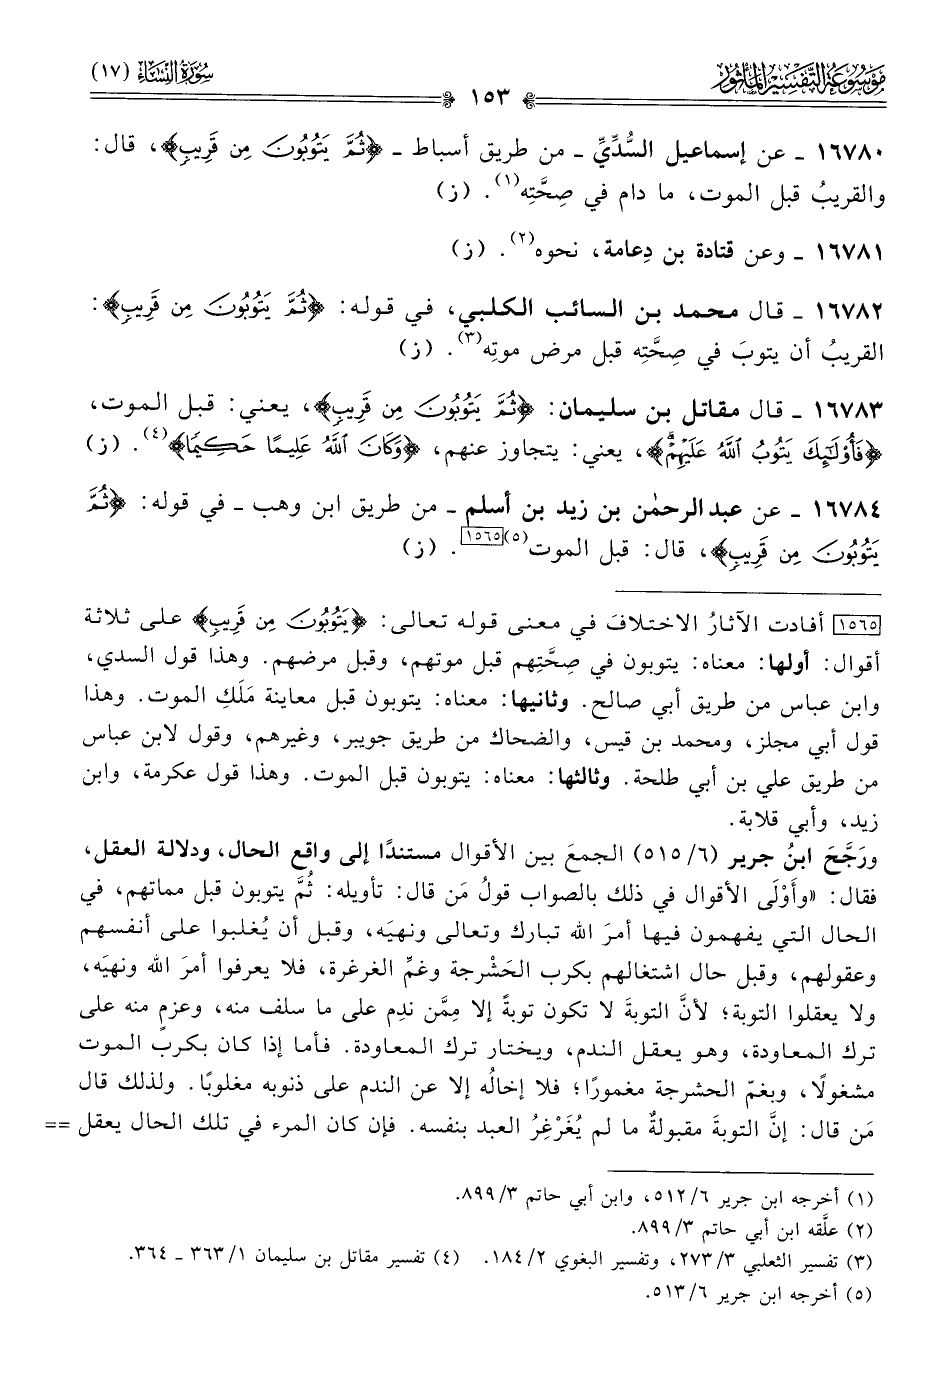 مَوْسُوعَة التَّفْسِيْر المَأْثُور
١٥٣
سُورَةُ النِّسَاءِ (١٧)
١٦٧٨٠ ـ عن إسماعيل السُّدِّيِّ ـ من طريق أسباط ـ ﴿ثُمَّ يَتُوبُونَ مِن قَرِيبٍ﴾، قال:
والقريبُ قبل الموت، ما دام في صِحَّتِه(١). (ز)
١٦٧٨١ ـ وعن قتادة بن دِعامة، نحوه(٢). (ز)
١٦٧٨٢ ـ قال محمد بن السائب الكلبي، في قوله: ﴿ثُمَّ يَتُوبُونَ مِن قَرِيبٍ﴾:
القريبُ أن يتوبَ في صِحَّتِه قبل مرض موتِه(٣). (ز)
١٦٧٨٣ ـ قال مقاتل بن سليمان: ﴿ثُمَّ يَتُوبُونَ مِن قَرِيبٍ﴾، يعني: قبل الموت،
﴿فَأُوْلَٰٓئِكَ يَتُوبُ ٱللَّهُ عَلَيْهِمْۗ﴾، يعني: يتجاوز عنهم، ﴿وَكَانَ ٱللَّهُ عَلِيمًا حَكِيمًا﴾(٤). (ز)
١٦٧٨٤ ـ عن عبدالرحمٰن بن زيد بن أسلم ـ من طريق ابن وهب ـ في قوله: ﴿ثُمَّ
يَتُوبُونَ مِن قَرِيبٍ﴾، قال: قبل الموت(٥)[١٥٦٥]. (ز)
[١٥٦٥] أفادت الآثارُ الاختلافَ في معنى قوله تعالى: ﴿يَتُوبُونَ مِن قَرِيبٍ﴾ على ثلاثة
أقوال: أولها: معناه: يتوبون في صِحَّتِهم قبل موتهم، وقبل مرضهم. وهذا قول السدي،
وابن عباس من طريق أبي صالح. وثانيها: معناه: يتوبون قبل معاينة مَلَكِ الموت. وهذا
قول أبي مجلز، ومحمد بن قيس، والضحاك من طريق جويبر، وغيرهم، وقول لابن عباس
من طريق علي بن أبي طلحة. وثالثها: معناه: يتوبون قبل الموت. وهذا قول عكرمة، وابن
زيد، وأبي قلابة.
ورَجَّحَ ابنُ جرير (٦/٥١٥) الجمعَ بين الأقوال مستندًا إلى واقع الحال، ودلالة العقل،
فقال: «وأَوْلَى الأقوال في ذلك بالصواب قولُ مَن قال: تأويله: ثُمَّ يتوبون قبل مماتهم، في
الحال التي يفهمون فيها أمرَ الله تبارك وتعالى ونهيَه، وقبل أن يُغلبوا على أنفسهم
وعقولهم، وقبل حال اشتغالهم بكرب الحَشْرجة وغمِّ الغرغرة، فلا يعرفوا أمرَ الله ونهيَه،
ولا يعقلوا التوبة؛ لأنَّ التوبةَ لا تكون توبةً إلا مِمَّن ندِم على ما سلف منه، وعزمٍ منه على
ترك المعاودة، وهو يعقل الندم، ويختار ترك المعاودة. فأما إذا كان بكرب الموت
مشغولًا، وبغمّ الحشرجة مغمورًا؛ فلا إخالُه إلا عن الندم على ذنوبه مغلوبًا. ولذلك قال
مَن قال: إنَّ التوبةَ مقبولةٌ ما لم يُغَرْغِرُ العبد بنفسه. فإن كان المرء في تلك الحال يعقل ==
(١) أخرجه ابن جرير ٦/٥١٢، وابن أبي حاتم ٣/٨٩٩.
(٢) علَّقه ابن أبي حاتم ٣/٨٩٩.
(٣) تفسير الثعلبي ٣/٢٧٣، وتفسير البغوي ٢/١٨٤. (٤) تفسير مقاتل بن سليمان ١/٣٦٣ ـ ٣٦٤.
(٥) أخرجه ابن جرير ٦/٥١٣.